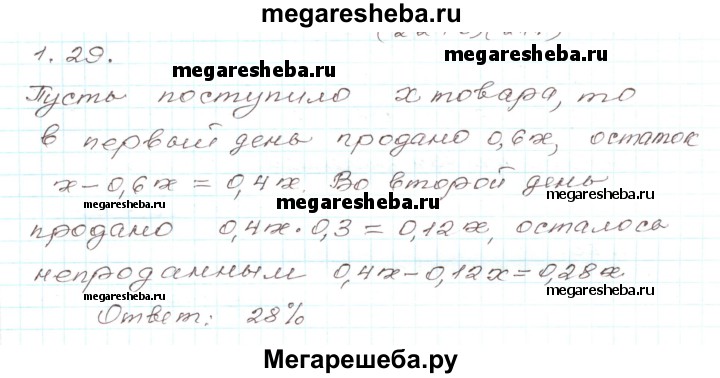 megaresheba.ru
1.29.
megaresheba.ru
Пусть поступило x товара, то
megaresheba.ru
в первый день продано 0,6x, остаток
x-0,6x = 0,4x. Во второй день
megaresheba.ru
megaresheba.ru
продано 0,4x·0,3 = 0,12x, осталось
непроданным 0,4x-0,12x=0,28x
megaresheba.ru
megaresheba.ru
Ответ: 28%
Мегарешеба.ру